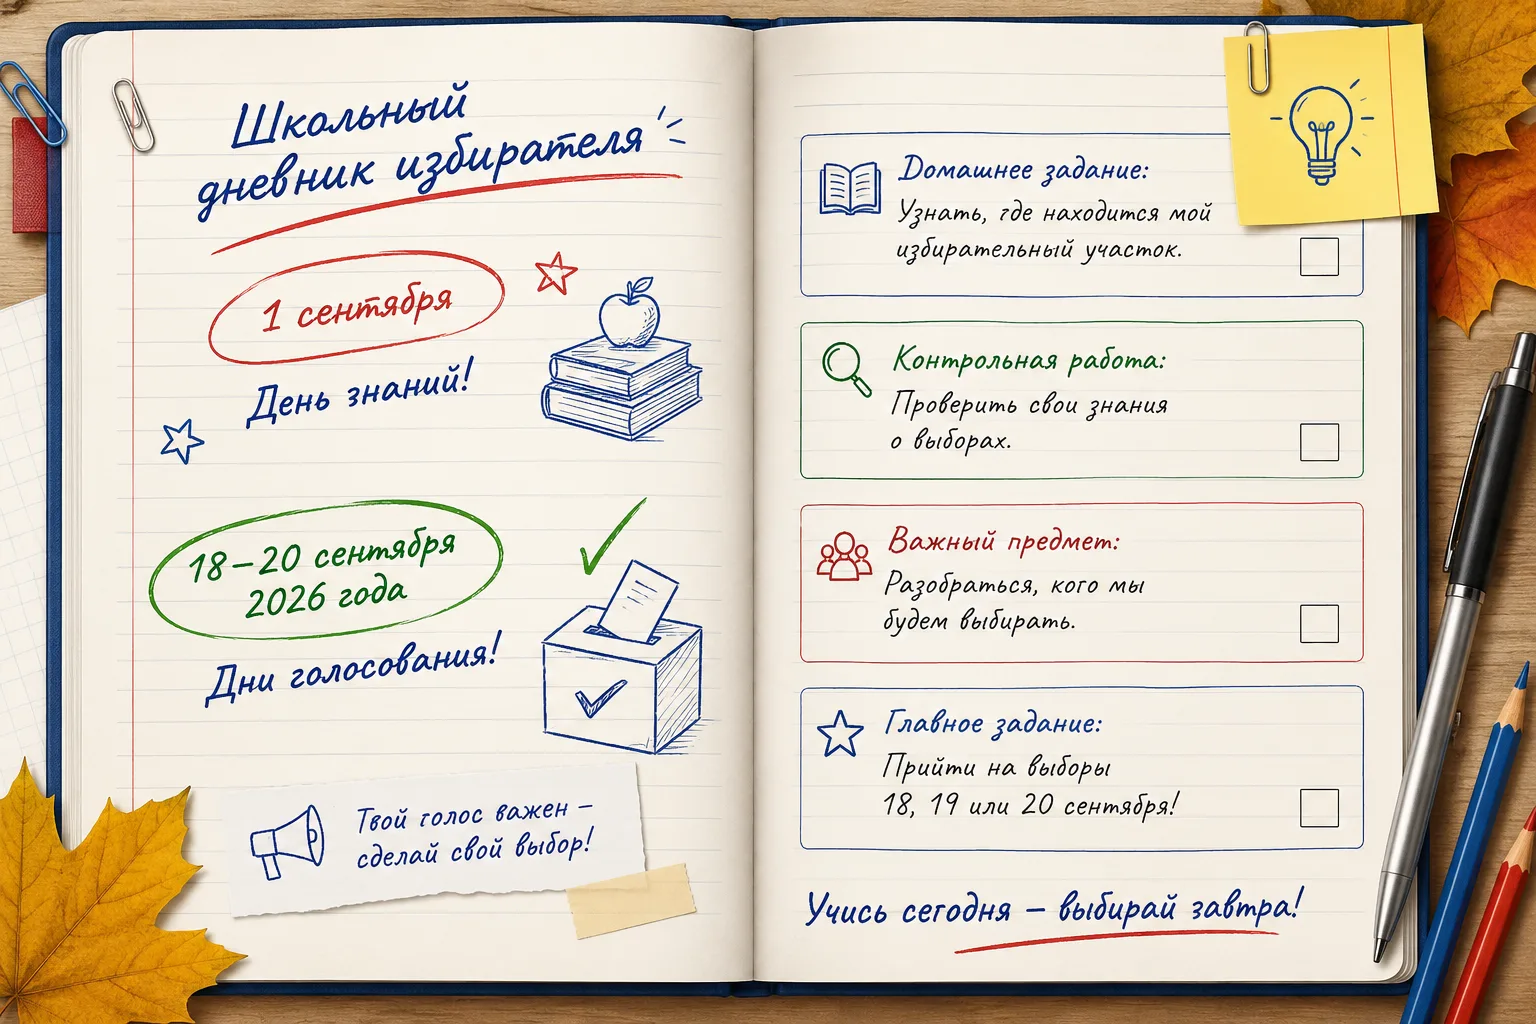 Школьный
дневник избирателя
1 сентября
День знаний!
18–20 сентября
2026 года
Дни голосования!
Твой голос важен –
сделай свой выбор!
Домашнее задание:
Узнать, где находится мой
избирательный участок.
Контрольная работа:
Проверить свои знания
о выборах.
Важный предмет:
Разобраться, кого мы
будем выбирать.
Главное задание:
Прийти на выборы
18, 19 или 20 сентября!
Учись сегодня – выбирай завтра!